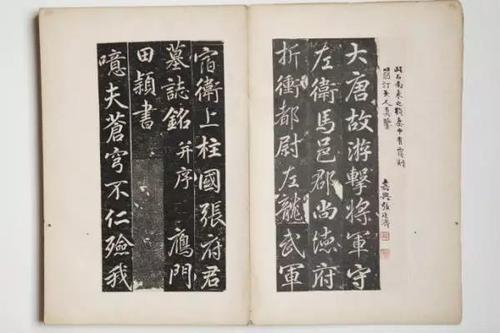 嘉興張廷濟
大唐故游擊將軍守
左衛馬邑郡尚德府
折衝都尉左龍武軍
宿衛上柱國張府君
墓誌銘并序 鴈門
田穎書
噫夫蒼穹不仁殲我